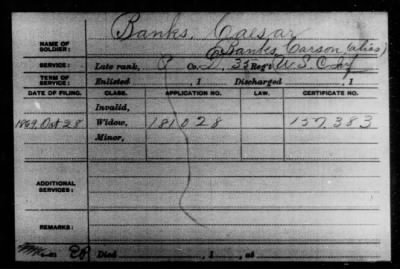 NAME OF SOLDIER: Banks, Caesar
Banks, Carson (alias)
SERVICE: Late rank, P Co. D, 35 Reg't U.S.C. Inf
TERM OF SERVICE: Enlisted , 1 Discharged , 1
DATE OF FILING. CLASS. APPLICATION NO. LAW. CERTIFICATE NO.
Invalid,
1869, Oct 28 Widow, 181028 157.383
Minor,
ADDITIONAL SERVICES:
REMARKS:
Died , 1 , at